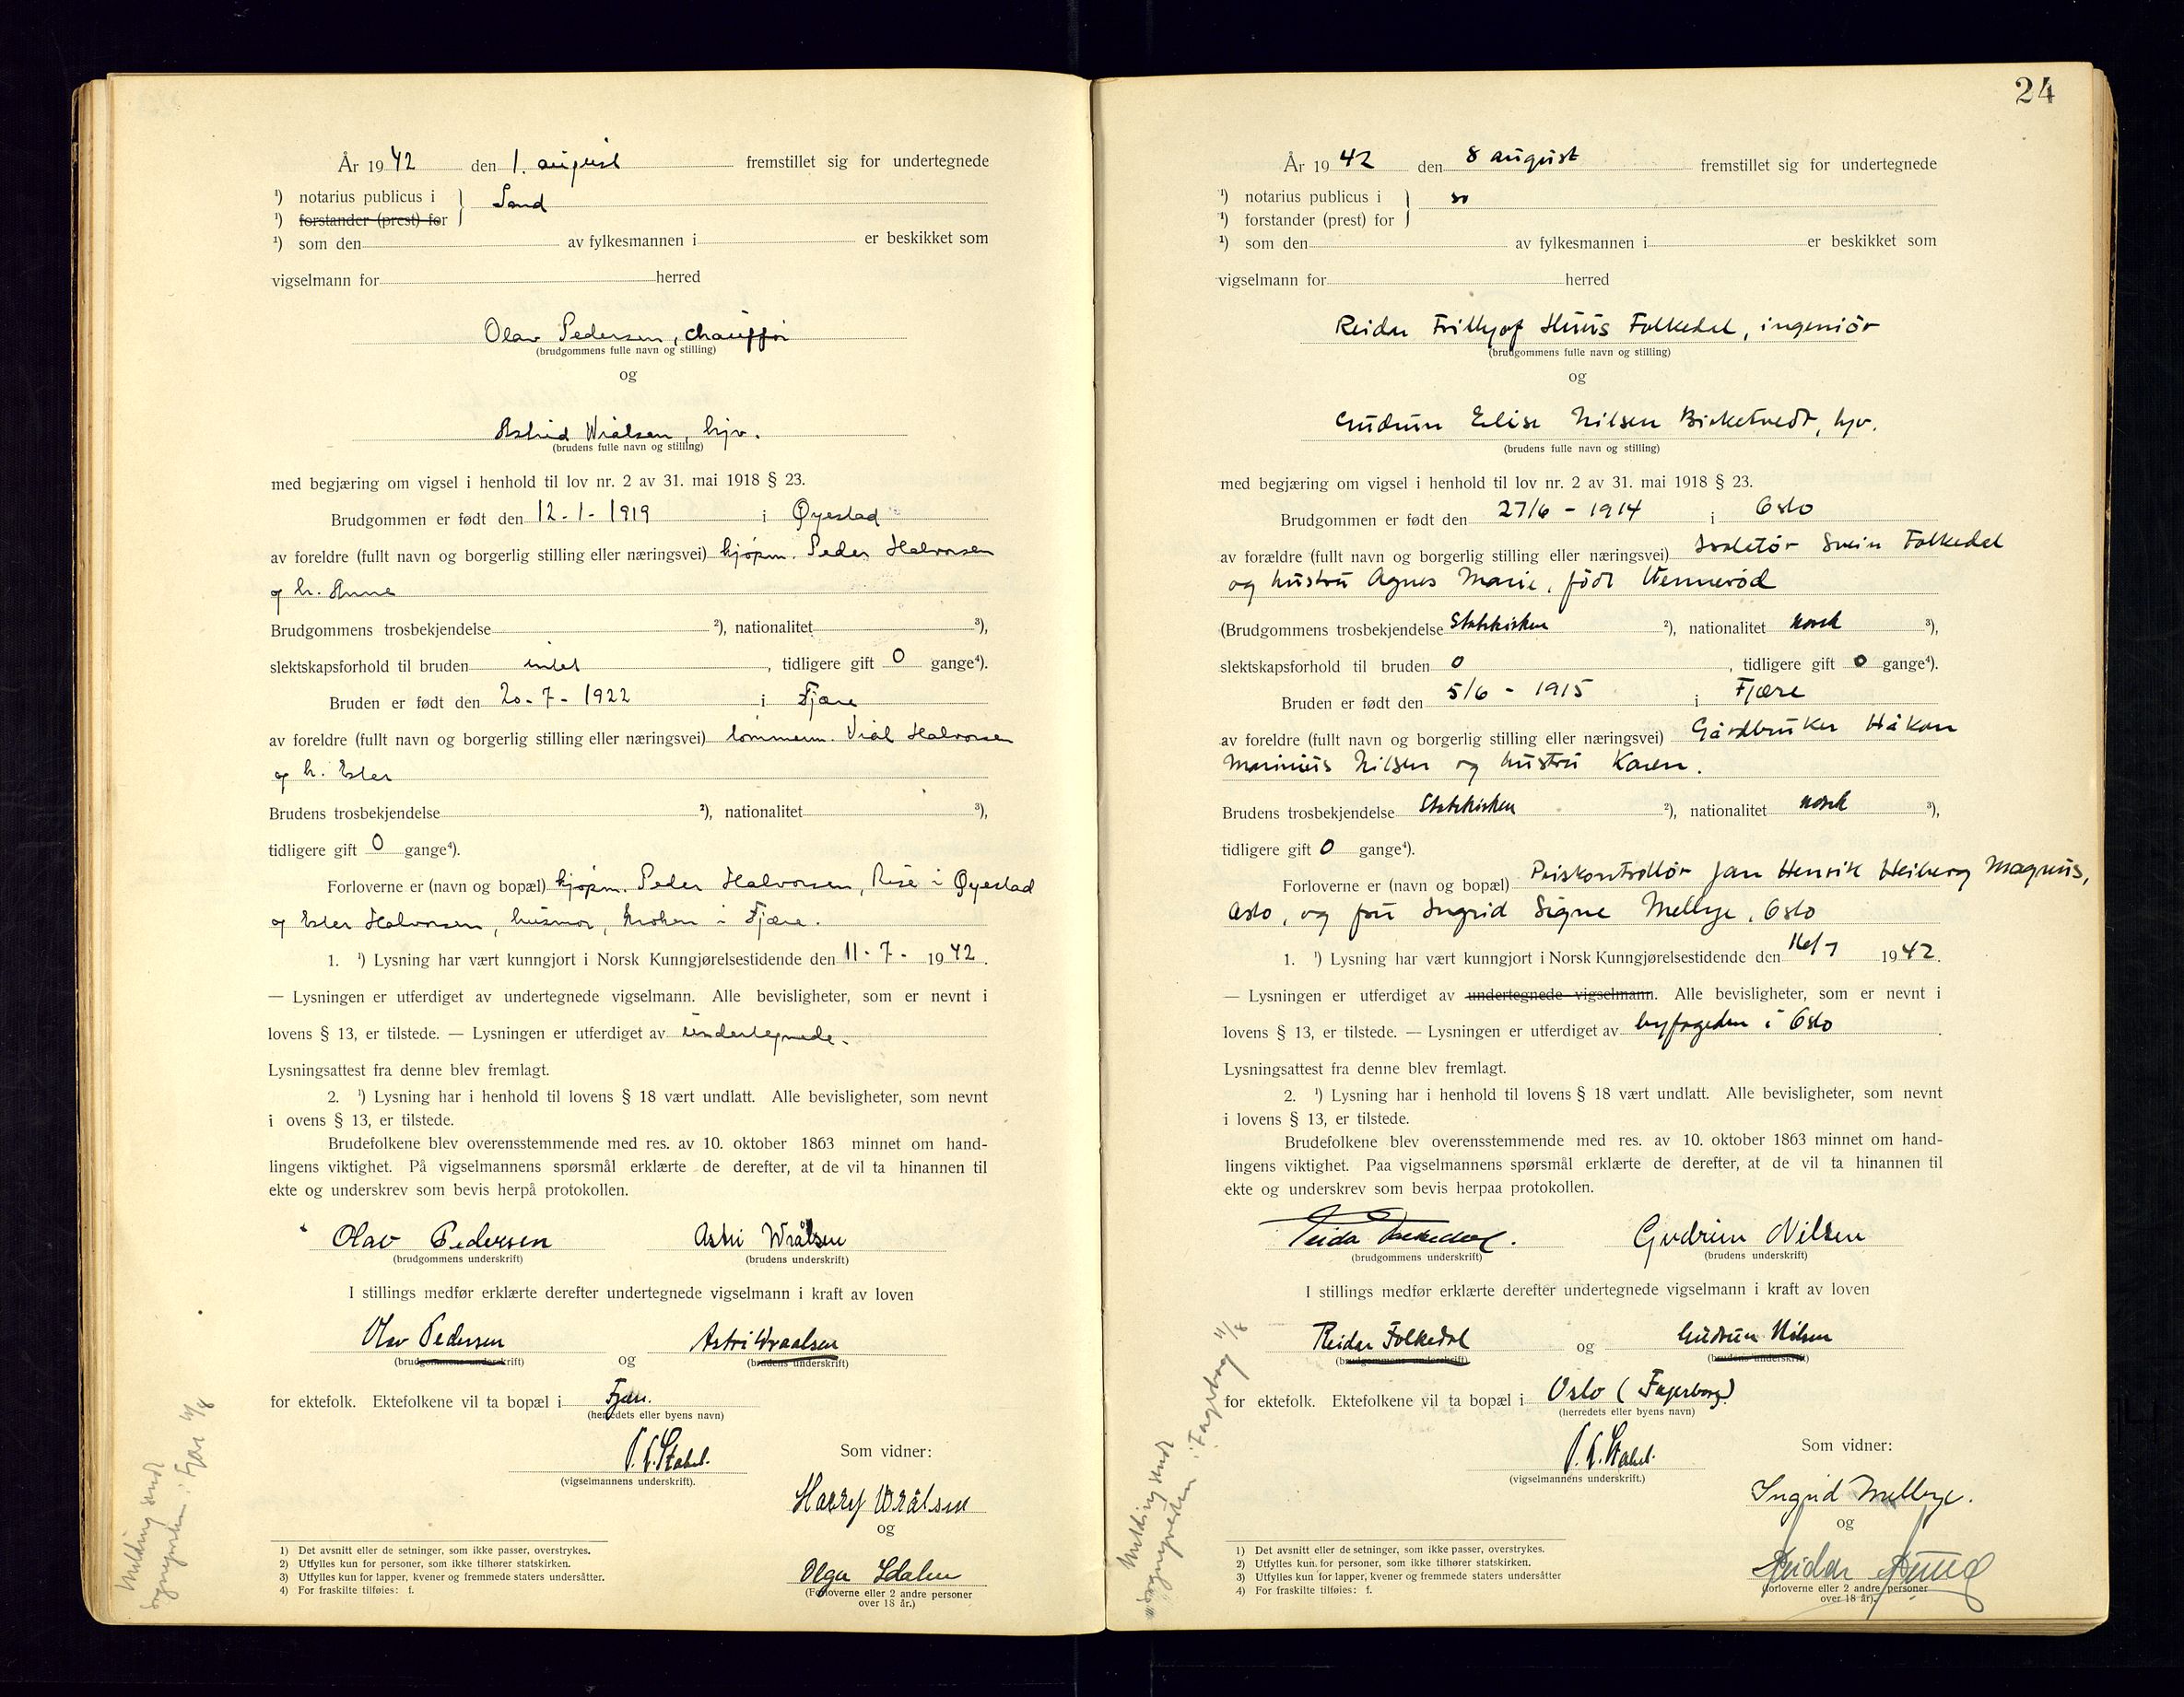 År 1942 den 1. august fremstillet sig for undertegnede
¹) notarius publicus i } Sand
¹) forstander (prest) for
¹) som den av fylkesmannen i er beskikket som
vigselmann for herred
Olav Pedersen, chauffør
(brudgommens fulle navn og stilling)
og
Astrid Wrålsen, hjv.
(brudens fulle navn og stilling)
med begjæring om vigsel i henhold til lov nr. 2 av 31. mai 1918 § 23.
Brudgommen er født den 12-1-1919 i Øyestad
av foreldre (fullt navn og borgerlig stilling eller næringsvei) kjøpm. Peder Halvorsen
og h. Anne
Brudgommens trosbekjendelse ²), nationalitet ³),
slektskapsforhold til bruden intet, tidligere gift 0 gange⁴).
Bruden er født den 20-7-1922 i Fjære
av foreldre (fullt navn og borgerlig stilling eller næringsvei) tømmerm. Vrål Halvorsen
og h. Ester
Brudens trosbekjendelse ²), nationalitet ³),
tidligere gift 0 gange⁴).
Forloverne er (navn og bopæl) kjøpm. Peder Halvorsen, Rise i Øyestad
og Ester Halvorsen, husmor, Kroken i Fjære.
1. ¹) Lysning har vært kunngjort i Norsk Kunngjørelsestidende den 11-7-1942.
— Lysningen er utferdiget av undertegnede vigselmann. Alle bevisligheter, som er nevnt i
lovens § 13, er tilstede. — Lysningen er utferdiget av undertegnede.
Lysningsattest fra denne blev fremlagt.
2. ¹) Lysning har i henhold til lovens § 18 vært undlatt. Alle bevisligheter, som nevnt
i ovens § 13, er tilstede.
Brudefolkene blev overensstemmende med res. av 10. oktober 1863 minnet om hand-
lingens viktighet. På vigselmannens spørsmål erklærte de derefter, at de vil ta hinannen til
ekte og underskrev som bevis herpå protokollen.
Olav Pedersen Astri Wrålsen
(brudgommens underskrift) (brudens underskrift)
I stillings medfør erklærte derefter undertegnede vigselmann i kraft av loven
Olav Pedersen og Astri Wraalsen
(brudgommens underskrift) (brudens underskrift)
for ektefolk. Ektefolkene vil ta bopæl i Fjære.
(herredets eller byens navn)
Som vidner:
(vigselmannens underskrift).
Harry Wrålsen
og
Olga Idalen
(Forloverne eller 2 andre personer
over 18 år.)
1) Det avsnitt eller de setninger, som ikke passer, overstrykes.
2) Utfylles kun for personer, som ikke tilhører statskirken.
3) Utfylles kun for lapper, kvener og fremmede staters undersåtter.
4) For fraskilte tilføies: f.
Melding sendt
sognepresten i Fjære
24
År 1942 den 8 august fremstillet sig for undertegnede
¹) notarius publicus i }
¹) forstander (prest) for
¹) som den av fylkesmannen i er beskikket som
vigselmann for herred
Reidar Fritjhof Huus Folkedal, ingeniør
(brudgommens fulle navn og stilling)
og
Gudrun Elise Nilsen Birketvedt, hjv.
(brudens fulle navn og stilling)
med begjæring om vigsel i henhold til lov nr. 2 av 31. mai 1918 § 23.
Brudgommen er født den 27/6 - 1914 i Oslo
av forældre (fullt navn og borgerlig stilling eller næringsvei) Isoletør Svein Folkedal
og hustru Agnes Marie, født Wennerød
(Brudgommens trosbekjendelse Statskirken ²), nationalitet norsk ³),
slektskapsforhold til bruden 0, tidligere gift 0 gange⁴).
Bruden er født den 5/6 - 1915 i Fjære
av foreldre (fullt navn og borgerlig stilling eller næringsvei) Gårdbruker Håkon
Marinius Nilsen og hustru Karen.
Brudens trosbekjendelse Statskirken ²), nationalitet norsk ³),
tidligere gift 0 gange⁴).
Forloverne er (navn og bopæl) Priskontrollør Jan Henrik Heiberg Magnus,
Oslo, og fru Ingrid Signe Mellbye, Oslo
1. ¹) Lysning har vært kunngjort i Norsk Kunngjørelsestidende den 16/7 1942.
— Lysningen er utferdiget av undertegnede vigselmann. Alle bevisligheter, som er nevnt i
lovens § 13, er tilstede. — Lysningen er utferdiget av byfogeden i Oslo.
Lysningsattest fra denne blev fremlagt.
2. ¹) Lysning har i henhold til lovens § 18 vært undlatt. Alle bevisligheter, som nevnt
i lovens § 13, er tilstede.
Brudefolkene blev overensstemmende med res. av 10. oktober 1863 minnet om hand-
lingens viktighet. Paa vigselmannens spørsmål erklærte de derefter, at de vil ta hinannen til
ekte og underskrev som bevis herpaa protokollen.
Reidar Folkedal. Gudrun Nilsen
(brudgommens underskrift) (brudens underskrift)
I stillings medfør erklærte derefter undertegnede vigselmann i kraft av loven
Reidar Folkedal og Gudrun Nilsen
(brudgommens underskrift) (brudens underskrift)
for ektefolk. Ektefolkene vil ta bopæl i Oslo (Fagerborg)
(herredets eller byens navn)
Som vidner:
(vigselmannens underskrift.)
Ingrid Mellbye.
og
Reidar
(forloverne eller 2 andre personer
over 18 år).
1) Det avsnitt eller de setninger, som ikke passer, overstrykes.
2) Utfylles kun for personer, som ikke tilhører statskirken.
3) Utfylles kun for lapper, kvener og fremmede staters undersåtter
4) For fraskilte tilføies: f.
Melding sendt
sognepresten i Fagerborg 11/8